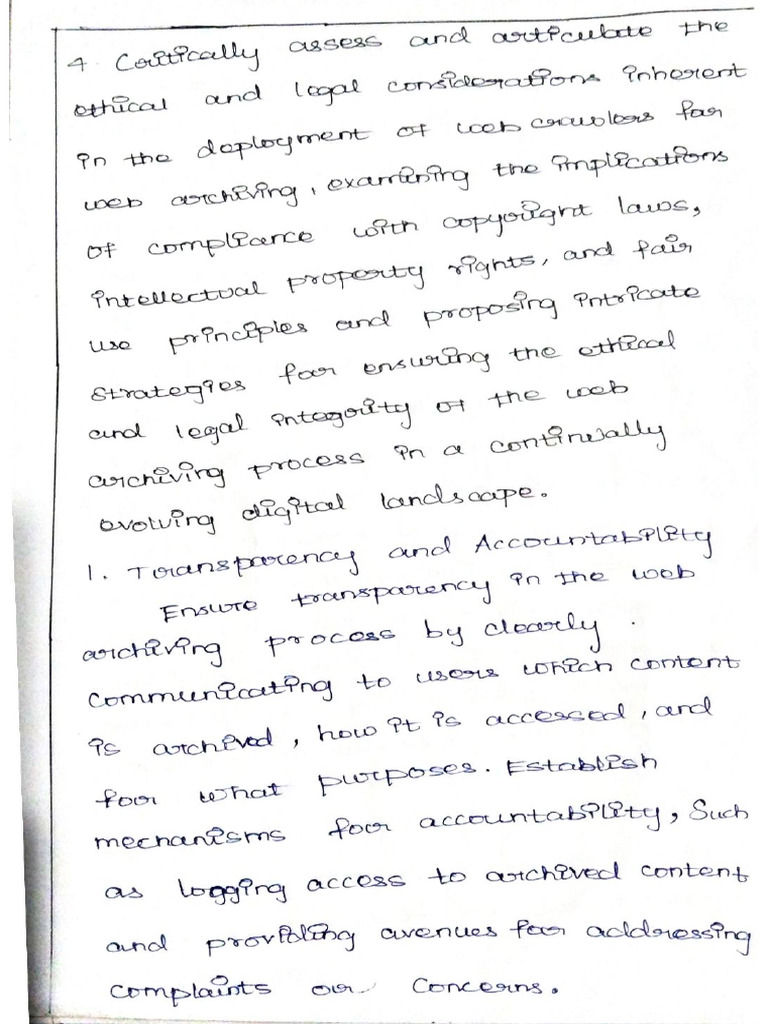 4. Critically assess and articulate the
ethical and legal considerations inherent
in the deployment of web crawlers for
web archiving, examining the implications
of compliance with copyright laws,
intellectual property rights, and fair
use principles and proposing intricate
strategies for ensuring the ethical
and legal integrity of the web
archiving process in a continually
evolving digital landscape.
1. Transparency and Accountability
Ensure transparency in the web
archiving process by clearly.
communicating to users which content
is archived, how it is accessed, and
for what purposes. Establish
mechanisms for accountability, Such
as logging access to archived content
and providing avenues for addressing
complaints or concerns.